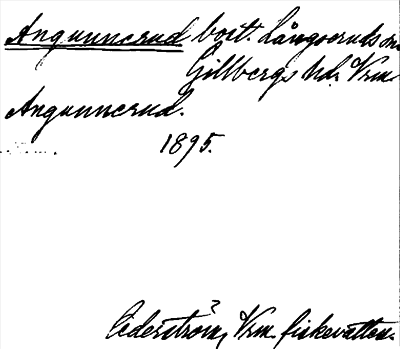 Angunnerud bort. Långseruds sn.
Gillbergs hd. Vrm.
Angunnerud.
1895.
Cederström, Vrm. fiskevatten.